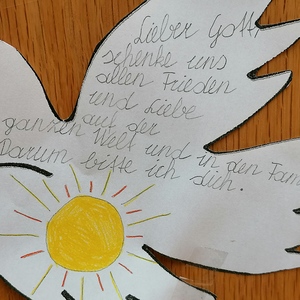 Lieber Gott,
schenke uns
allen Frieden
und Liebe
auf der
ganzen Welt und in den Fam
Darum bitte ich dich.